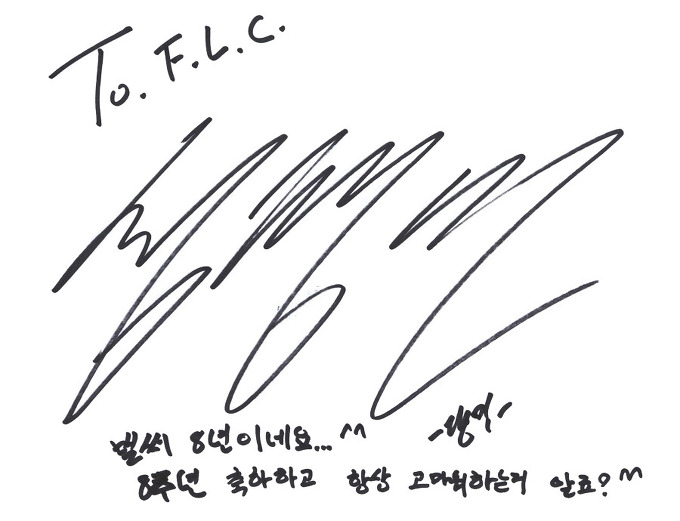 To. F.L.C.
벌써 8년이네요...^^
8주년 축하하고 항상 고마워하는거 알죠?^^